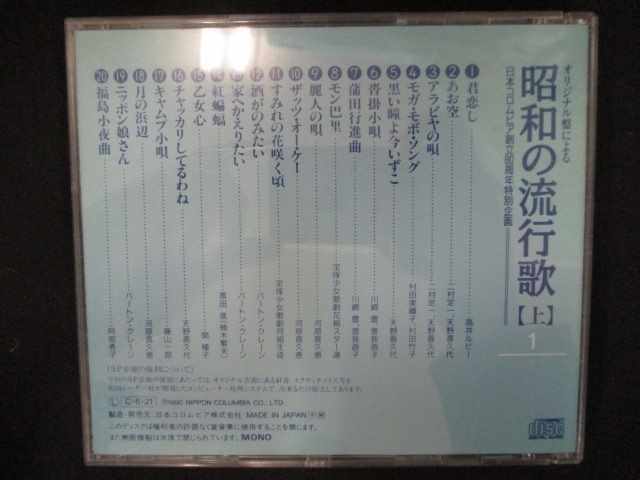 オリジナル盤による
昭和の流行歌【上】
日本コロムビア創立80周年特別企画
1
1 君恋し 高井ルビー
2 あお空 二村定一、天野喜久代
3 アラビヤの唄 二村定一、天野喜久代
4 モガ・モボ・ソング 村田美禰子、村田竹子
5 黒い瞳よ今いずこ 天野喜久代
6 沓掛小唄 川崎豊、曽我直子
7 蒲田行進曲 川崎豊、曽我直子
8 モン巴里 宝塚少女歌劇花組スター連
9 麗人の唄 河原喜久恵
10 ザッツ・オーケー 河原喜久恵
11 すみれの花咲く頃 宝塚少女歌劇月組生徒
12 酒がのみたい バートン・クレーン
13 家へかえりたい バートン・クレーン
14 紅蝙蝠
15 乙女心 関種子
16 チャッカリしてるわね 天野喜久代
17 キャムプ小唄 藤山一郎
18 月の浜辺 河原喜久恵
19 ニッポン娘さん バートン・クレーン
20 福島小夜曲 阿部秀子
Ⓛ C-6-21 ℗1990 NIPPON COLUMBIA CO., LTD.
製造・発売元.日本コロムビア株式会社 MADE IN JAPAN
このディスクは権利者の許諾なく賃貸業に使用することを禁じます。
また無断複製は法律で禁じられています。 MONO
COMPACT disc DIGITAL AUDIO